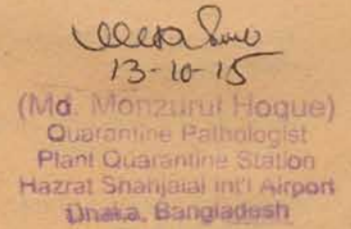 13-10-15
(Md. Monzurul Hoque)
Quarantine Pathologist
Plant Quarantine Station
Hazrat Shahjalal Int'l Airport
Dhaka, Bangladesh